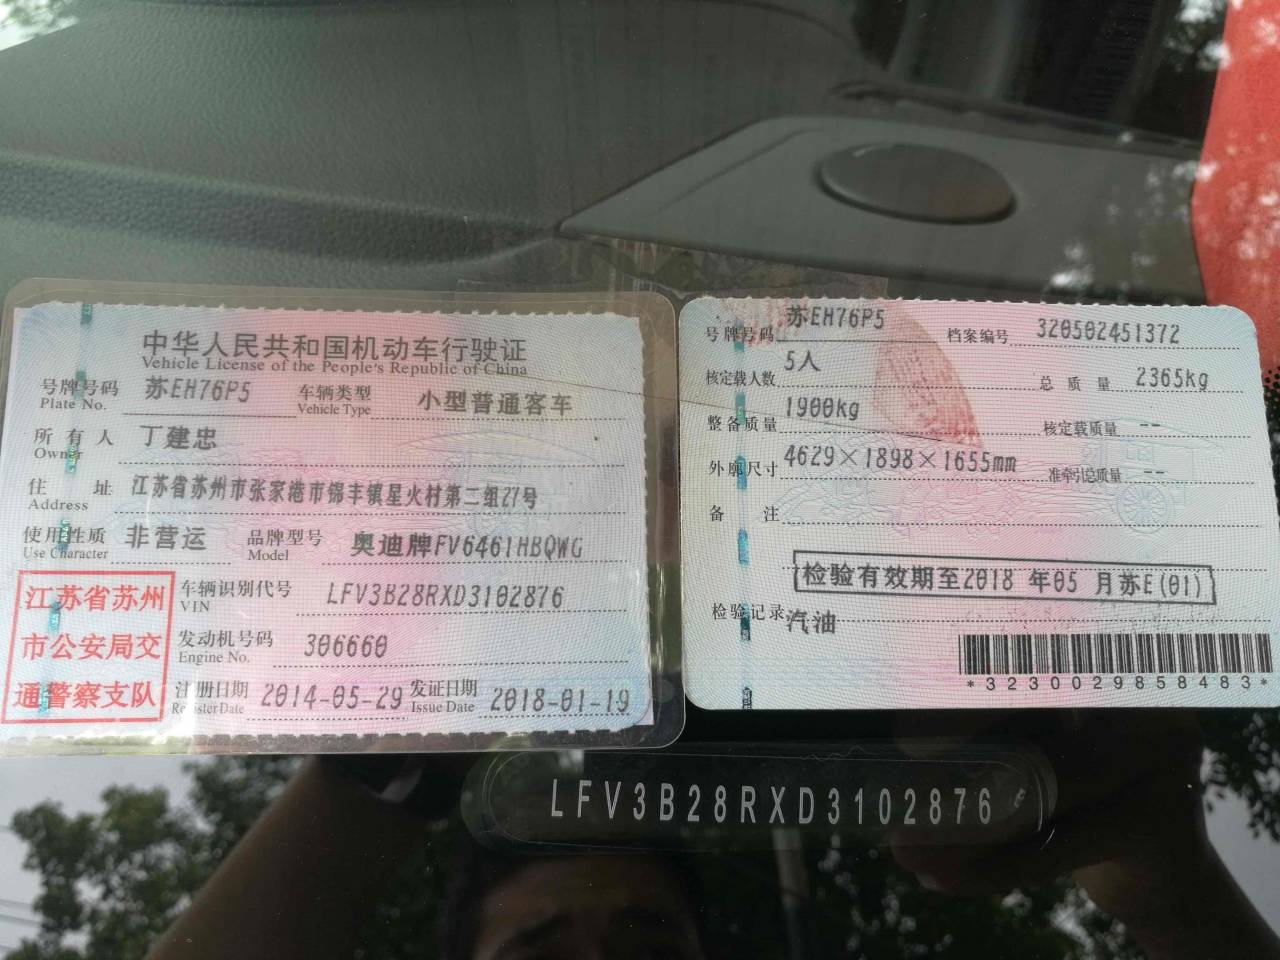 中华人民共和国机动车行驶证
Vehicle License of the People's Republic of China
号牌号码 苏EH76P5 车辆类型 小型普通客车
Plate No. Vehicle Type
所有人 丁建忠
Owner
住址 江苏省苏州市张家港市锦丰镇星火村第二组27号
Address
使用性质 非营运 品牌型号 奥迪牌FV6461HBQWG
Use Character Model
江苏省苏州
市公安局交
通警察支队
车辆识别代号 LFV3B28RXD3102876
VIN
发动机号码 306660
Engine No.
注册日期 2014-05-29 发证日期 2018-01-19
Register Date Issue Date
号牌号码 苏EH76P5 档案编号 320502451372
核定载人数 5人 总质量 2365kg
整备质量 1900kg 核定载质量 --
外廓尺寸 4629×1898×1655mm 准牵引总质量 --
备注
检验有效期至2018 年05 月苏E(01)
检验记录 汽油
*3230029858483*
LFV3B28RXD3102876